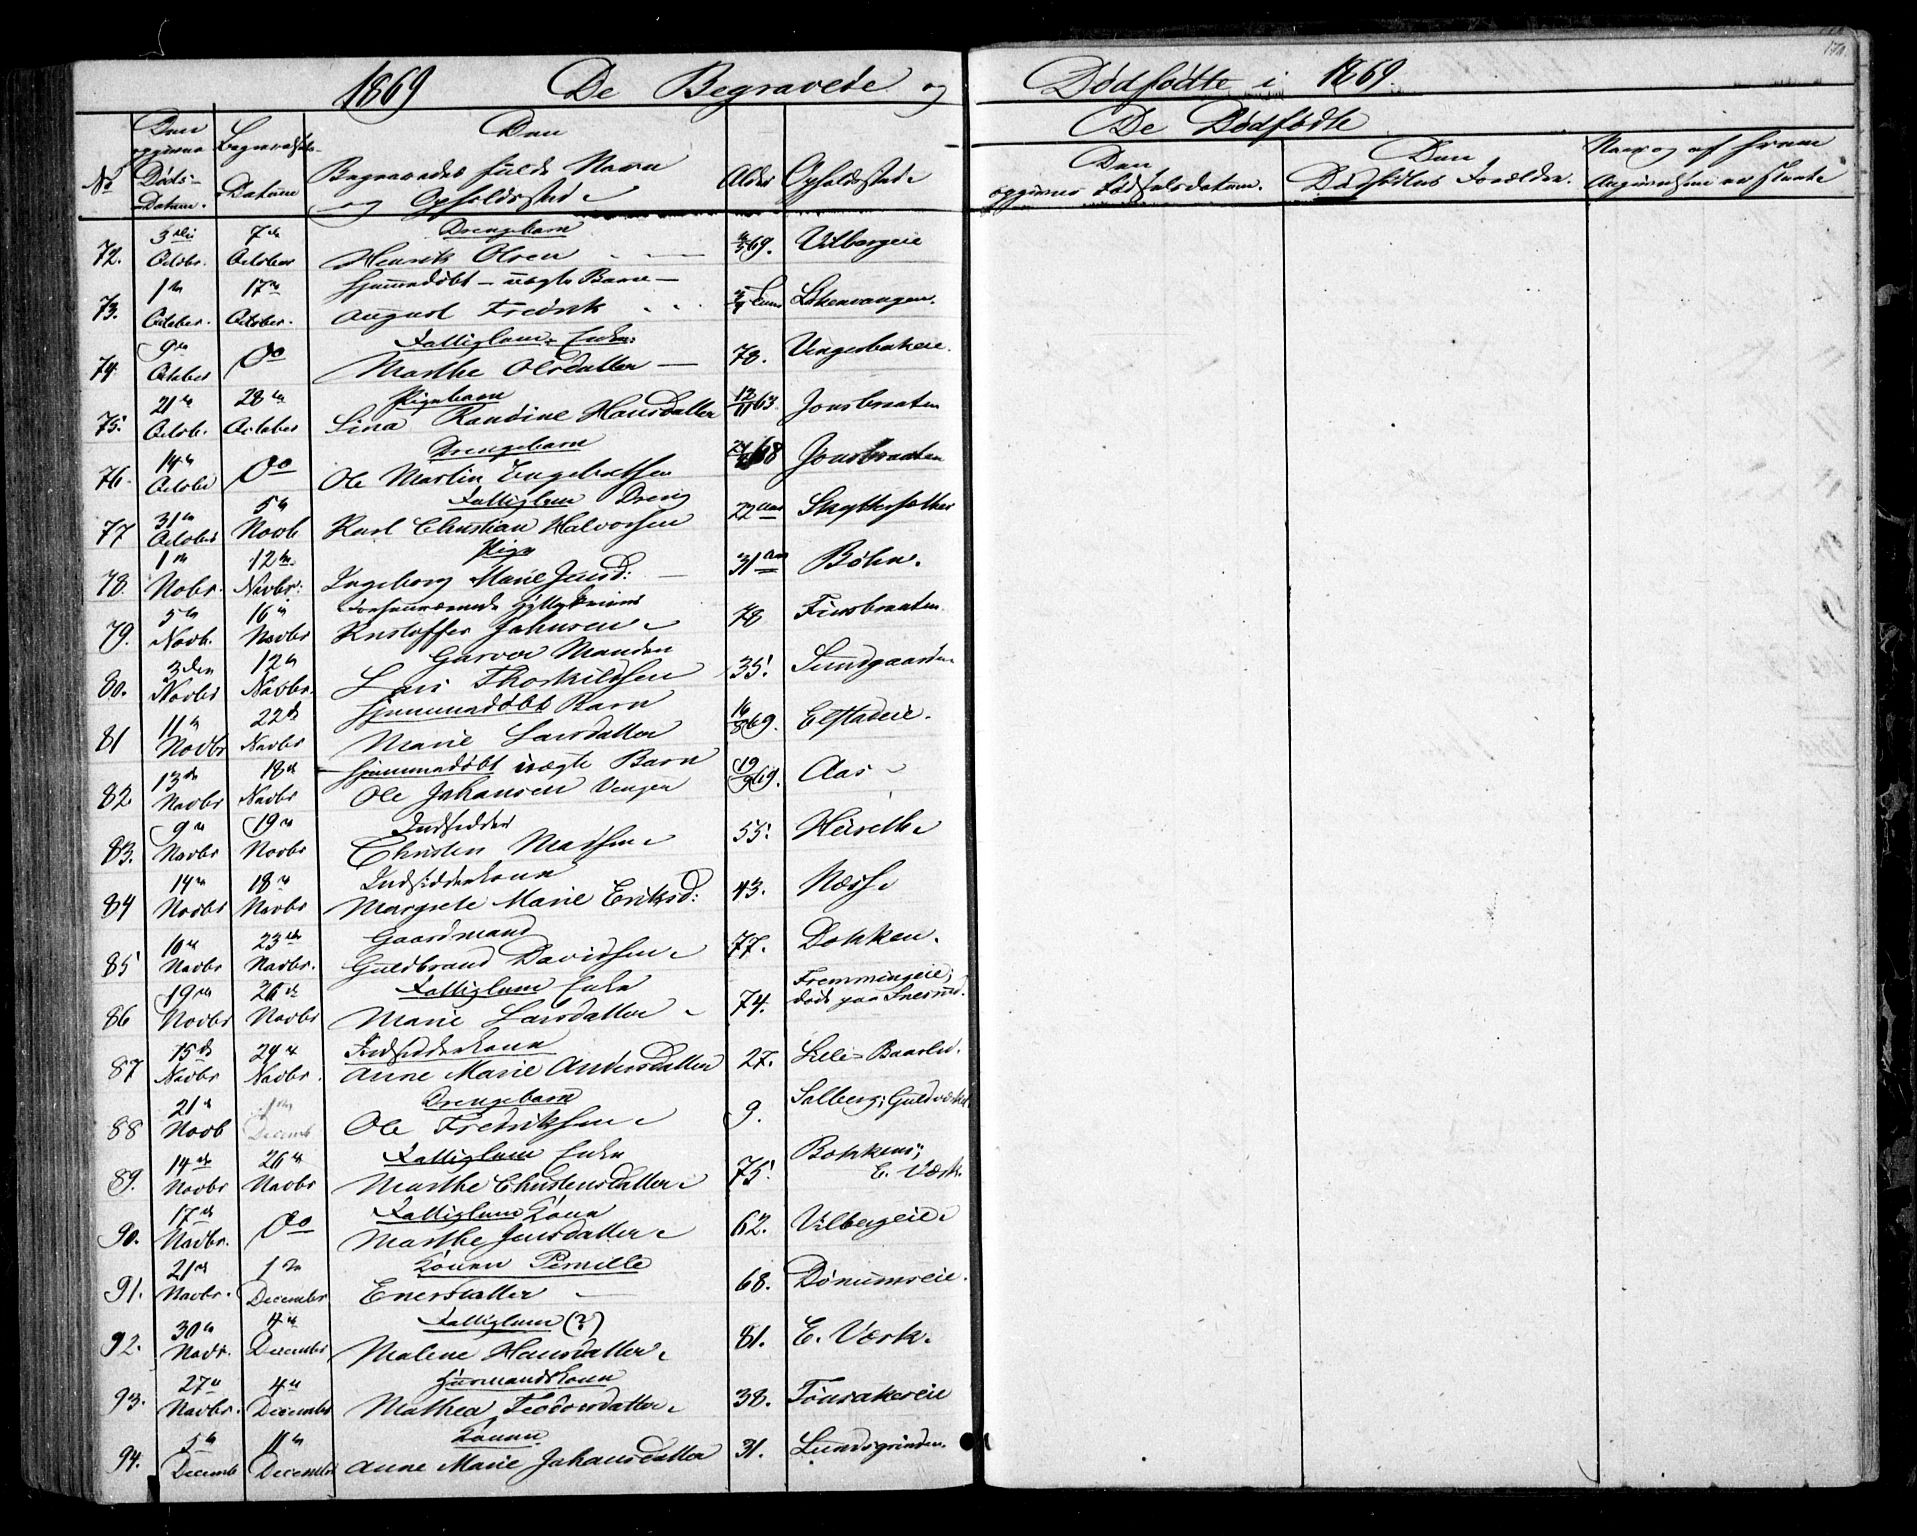 1869 De Begravede og
Dødfødte i 1869.
No
Den opgivne Døds-Datum.
Begravelses-Datum
Den Begravedes fulde Navn og Opholdssted
Alder
Opholdssted
De Dødfødte
Den opgivne Fødselsdatum.
Den Dødfødtes Forældre.
72. 3die Octobr. 7de October Drengebarn
Henrik Olsen 69. Vilbergeie
73. 1ste October. 17de October. hjemmedøbt uægte Barn
August Fredrik
74. 9de October Do Fattiglem Enke
Marthe Olsdatter 78.
75. 21de Octob. 28de October Pigebarn
Sina Randine Hansdatter 12/11 63 Jonsbraaten
76. 14de Octobr Do Drengebarn
Ole Martin Engebretsen 68 Jonsbraaten
77 31te October 5te Novb Fattiglem Dreng
Karl Christian Halvorsen 22 aar
78. 1ste Nobr. 12te Novbr: Pige
Ingeborg Marie Jensd: 31 aar Bøhn.
79. 5te Novb. 16de Novbr
Kristoffer Johnsen 78 Finsbraaten
80. 3die Novbr 12te Novbr. Garver Manden
Lars Thorkildsen 35. Sundgaarden
81 11te Novbr 22de Novbr Hjemmedøbt Barn
Marie Larsdatter 16/8 69. Elstadeie.
82 13de Novbr 18de Novbr Hjemmedøbt uægte Barn
Ole Johansen Venger 19/9 69. Aas
83. 9de Novbr 19de Novbr Indsidder
Christen Madsen 55.
84 14de Novbr 18de Novbr Indsidderkone
Margrete Marie Eriksd: 43. Næss
85 10de Novbr 23de Novbr. Gaardmand
Guldbrand Davidsen 77. Dokken.
86 19de Novbr 26de Novbr Fattiglem Enke
Marie Larsdatter 74. Fremmingeie;
død paa
87 15de Novbr 24de Novbr. Indsidderkone
Anne Marie Andersdatter 27. Lille
88 21de Novb 1ste Decemb Drengebarn
Ole Fredriksen 9. Guldverket
89. 14de Novbr 26de Novbr Fattiglem Enke
Marthe Christensdatter 75.
E. Værk.
90. 17de Novbr. Do Fattiglem Kone
Marthe Jensdatter 62. Vilbergeie
91. 21de Novbr. 1ste December Konen Pernille
Enersdatter 68. Dønnumseie.
92. 30te Novbr. 4de December Fattiglem (?)
Malene Hansdatter 81. E. Værk.
93. 27de Novbr. 4de December Husmandskone
Mathea Teodorsdatter 38. Tønsakereie
94. 5te Decemb 11te December Konen
Anne Marie Johansdatter 31. Lundsgrinden.